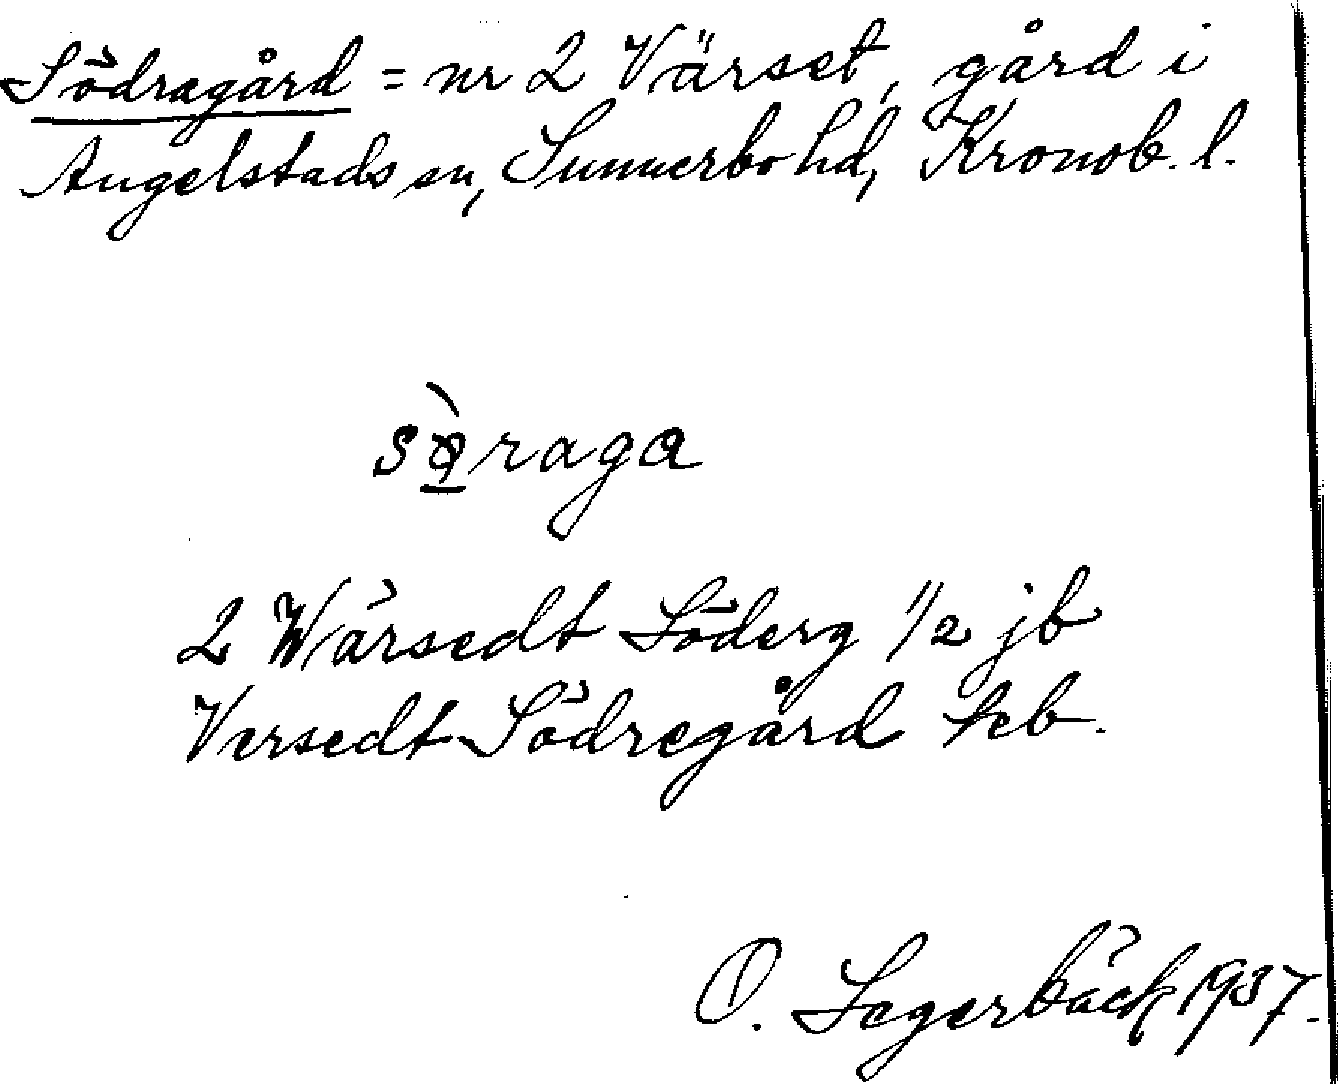 Södragård = nr 2 Värset, gård i
Angelstads sn, Sunnerbo hd, Kronob. l.
sø̀raga
2 Wärsedt Söderg 1/2 jb
Versedt Södregård teb.
O. Lagerbäck 1937.